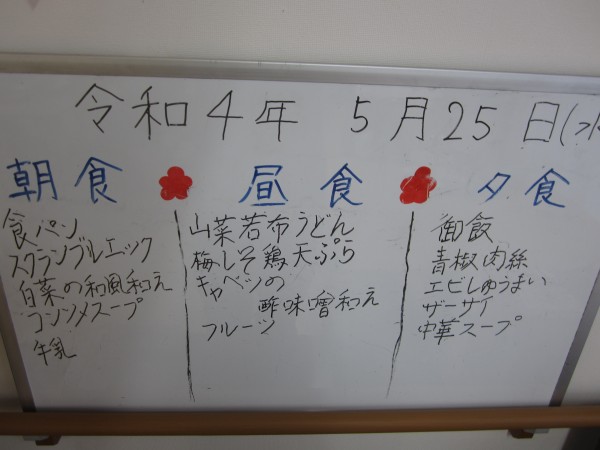 令和4年 5月25日(水
朝食
食パン
スクランブルエッグ
白菜の和風和え
コンソメスープ
牛乳
昼食
山菜若布うどん
梅しそ鶏天ぷら
キャベツの
酢味噌和え
フルーツ
夕食
御飯
青椒肉絲
エビしゅうまい
ザーサイ
中華スープ